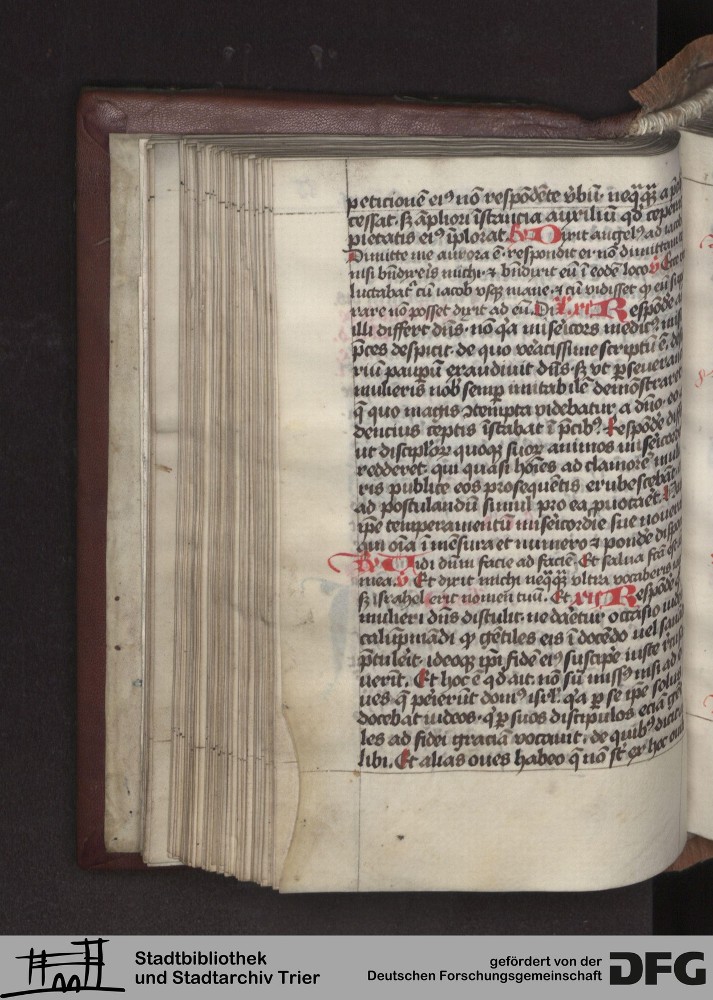 peticionē eiꝰ nō respōdēte v̉bū neqꝗꝫ a p
cessat. sꝫ āpliori īstantia auxiliū qđ cepe
pietatis eiꝰ īplorat. Dixit angelꝰ ad iaco
Dimitte me aurora ē. respondit ei nō dimittam
nisi bn̄dixeis michi. ⁊ bn̄dixit eū ī eodē loco. v̉ Cū
luctabat᷑ cū iacob vsqꝫ mane. ⁊ cū vidisset ꝙ eū
rare nō posset dixit ad eū. Di Respōde
illi differt dn̄s. nō q̇a misericors
p̄ces despicit. de quo veracissime scriptū ē. de
riū paupū exaudiuit dn̄s. sꝫ vt ꝑseueran
mulieris nob̄ semꝑ imitabilē demōstraret
q̄ quo magis ꝯtempta videbatur a dn̄o. eo
dencius ceptis īstabat ī p̄cibꝰ. Respōde
ut disciploꝝ quoqꝫ suoꝝ animos misericord
redderet. qui quasi hoīes ad clamorē mul
ris publice eos prosequētis erubescebāt
ad postulandū simul pro ea ꝓuocaret.
ip̄e temperamentū misericordie sue nouerat
qui oīa ī mēsura et numero ⁊ pondē dispo
Uidi dūm facie ad faciē. Et salua fcā ē
mea. v̉ Et dixit michi neqꝗꝫ vltra vocaberis
sꝫ israhel erit nomen tuū. Et Respōde
mulieri dn̄s distulit. ne daretur occasio iude
calūpniādi ꝙ gētiles eis ī docēdo uel
p̄tulerit. ideoqꝫ ip̄i fidē eiꝰ suscipe iuste
uerit. Et hoc ē qđ ait. nō sū missꝰ nisi ad
ues q̄ perierūt domꝰ isrl̄. q̇a ꝑ se ip̄e
docebat iudeos. q̇ ꝑ suos discipulos eciā gē
les ad fidei graciā vocauit. de quibꝰ dicit
libi. Et alias oues habeo q̄ nō st̄ ex hoc oui
Stadtbibliothek
und Stadtarchiv Trier
gefördert von der
Deutschen Forschungsgemeinschaft
DFG